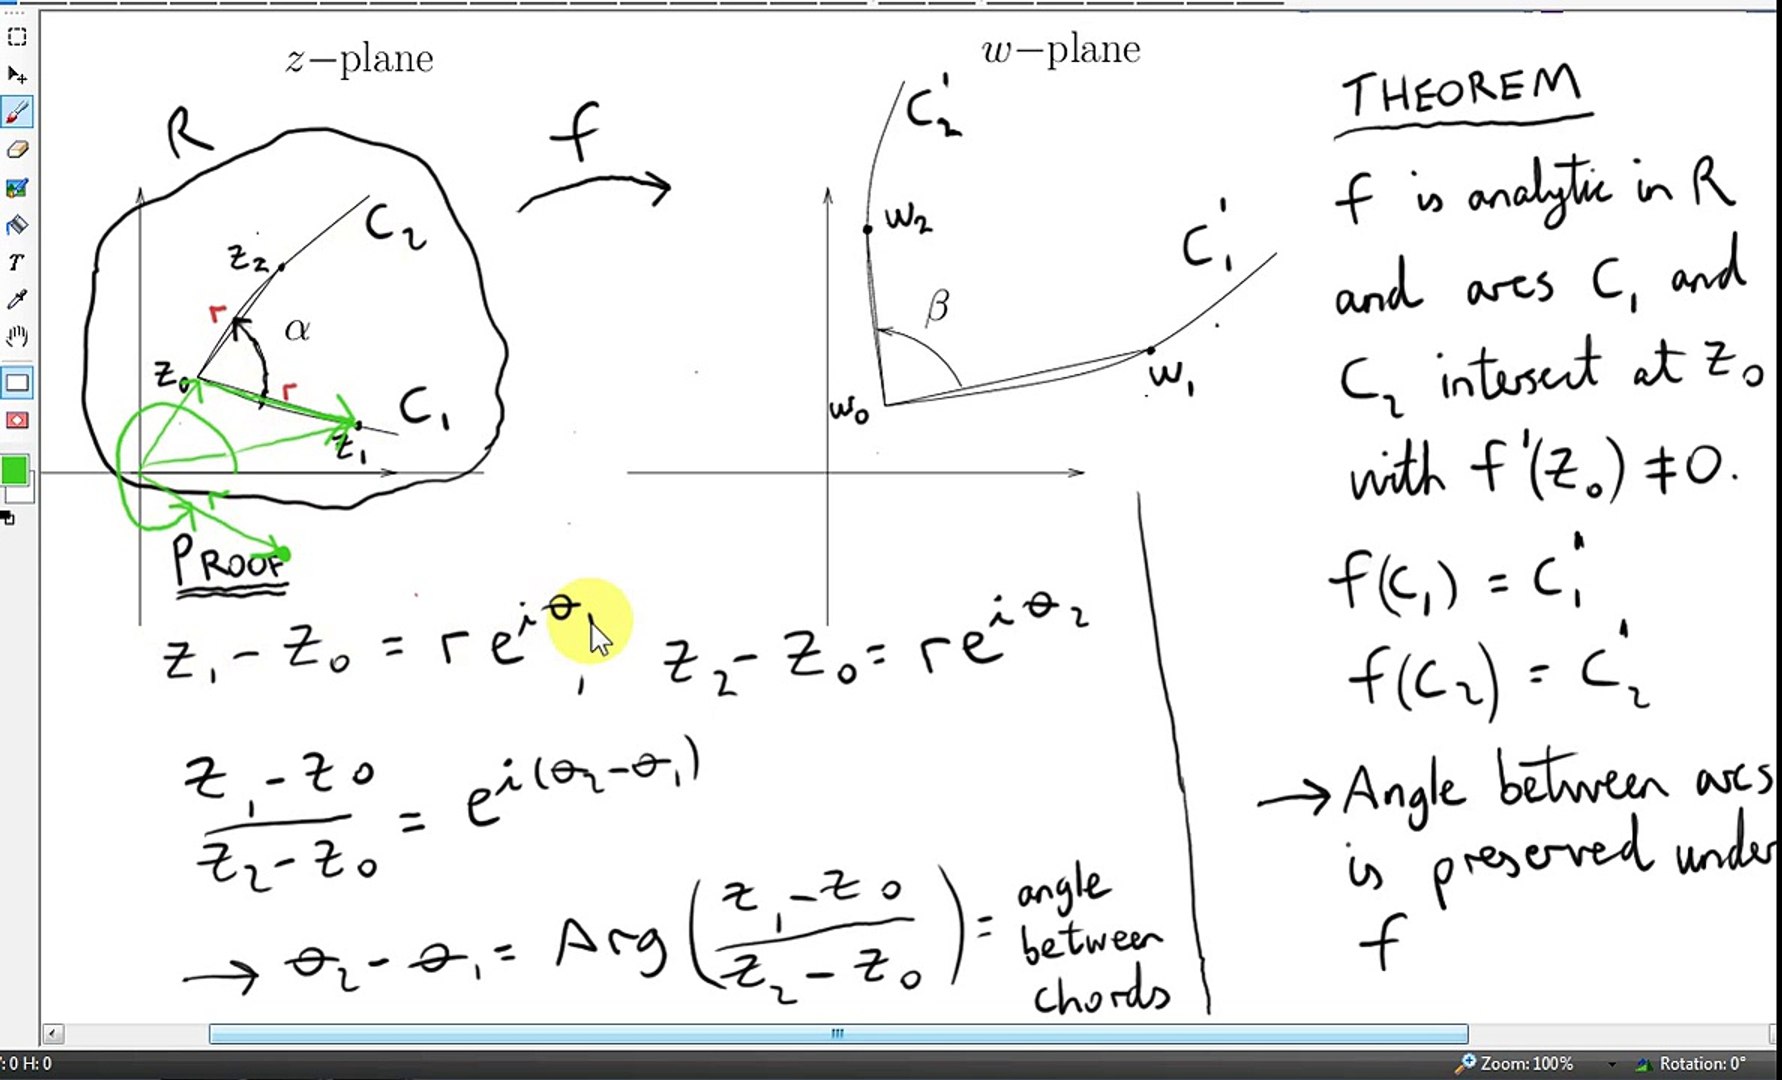 z−plane
w−plane
R
f
C₂
z₂
r
α
z₀
r
C₁
z₁
r
C₂'
w₂
C₁'
β
w₀
w₁
THEOREM
f is analytic in R
and arcs C₁ and
C₂ intersect at z₀
with f'(z₀) ≠ 0.
f(C₁) = C₁'
f(C₂) = C₂'
→ Angle between arcs
is preserved under
f
PROOF
z₁ - z₀ = re^{iθ₁}, z₂ - z₀ = re^{iθ₂}
(z₁ - z₀)/(z₂ - z₀) = e^{i(θ₂-θ₁)}
→ θ₂ - θ₁ = Arg((z₁ - z₀)/(z₂ - z₀)) = angle
between
chords
: 0 H: 0
Zoom: 100%
Rotation: 0°